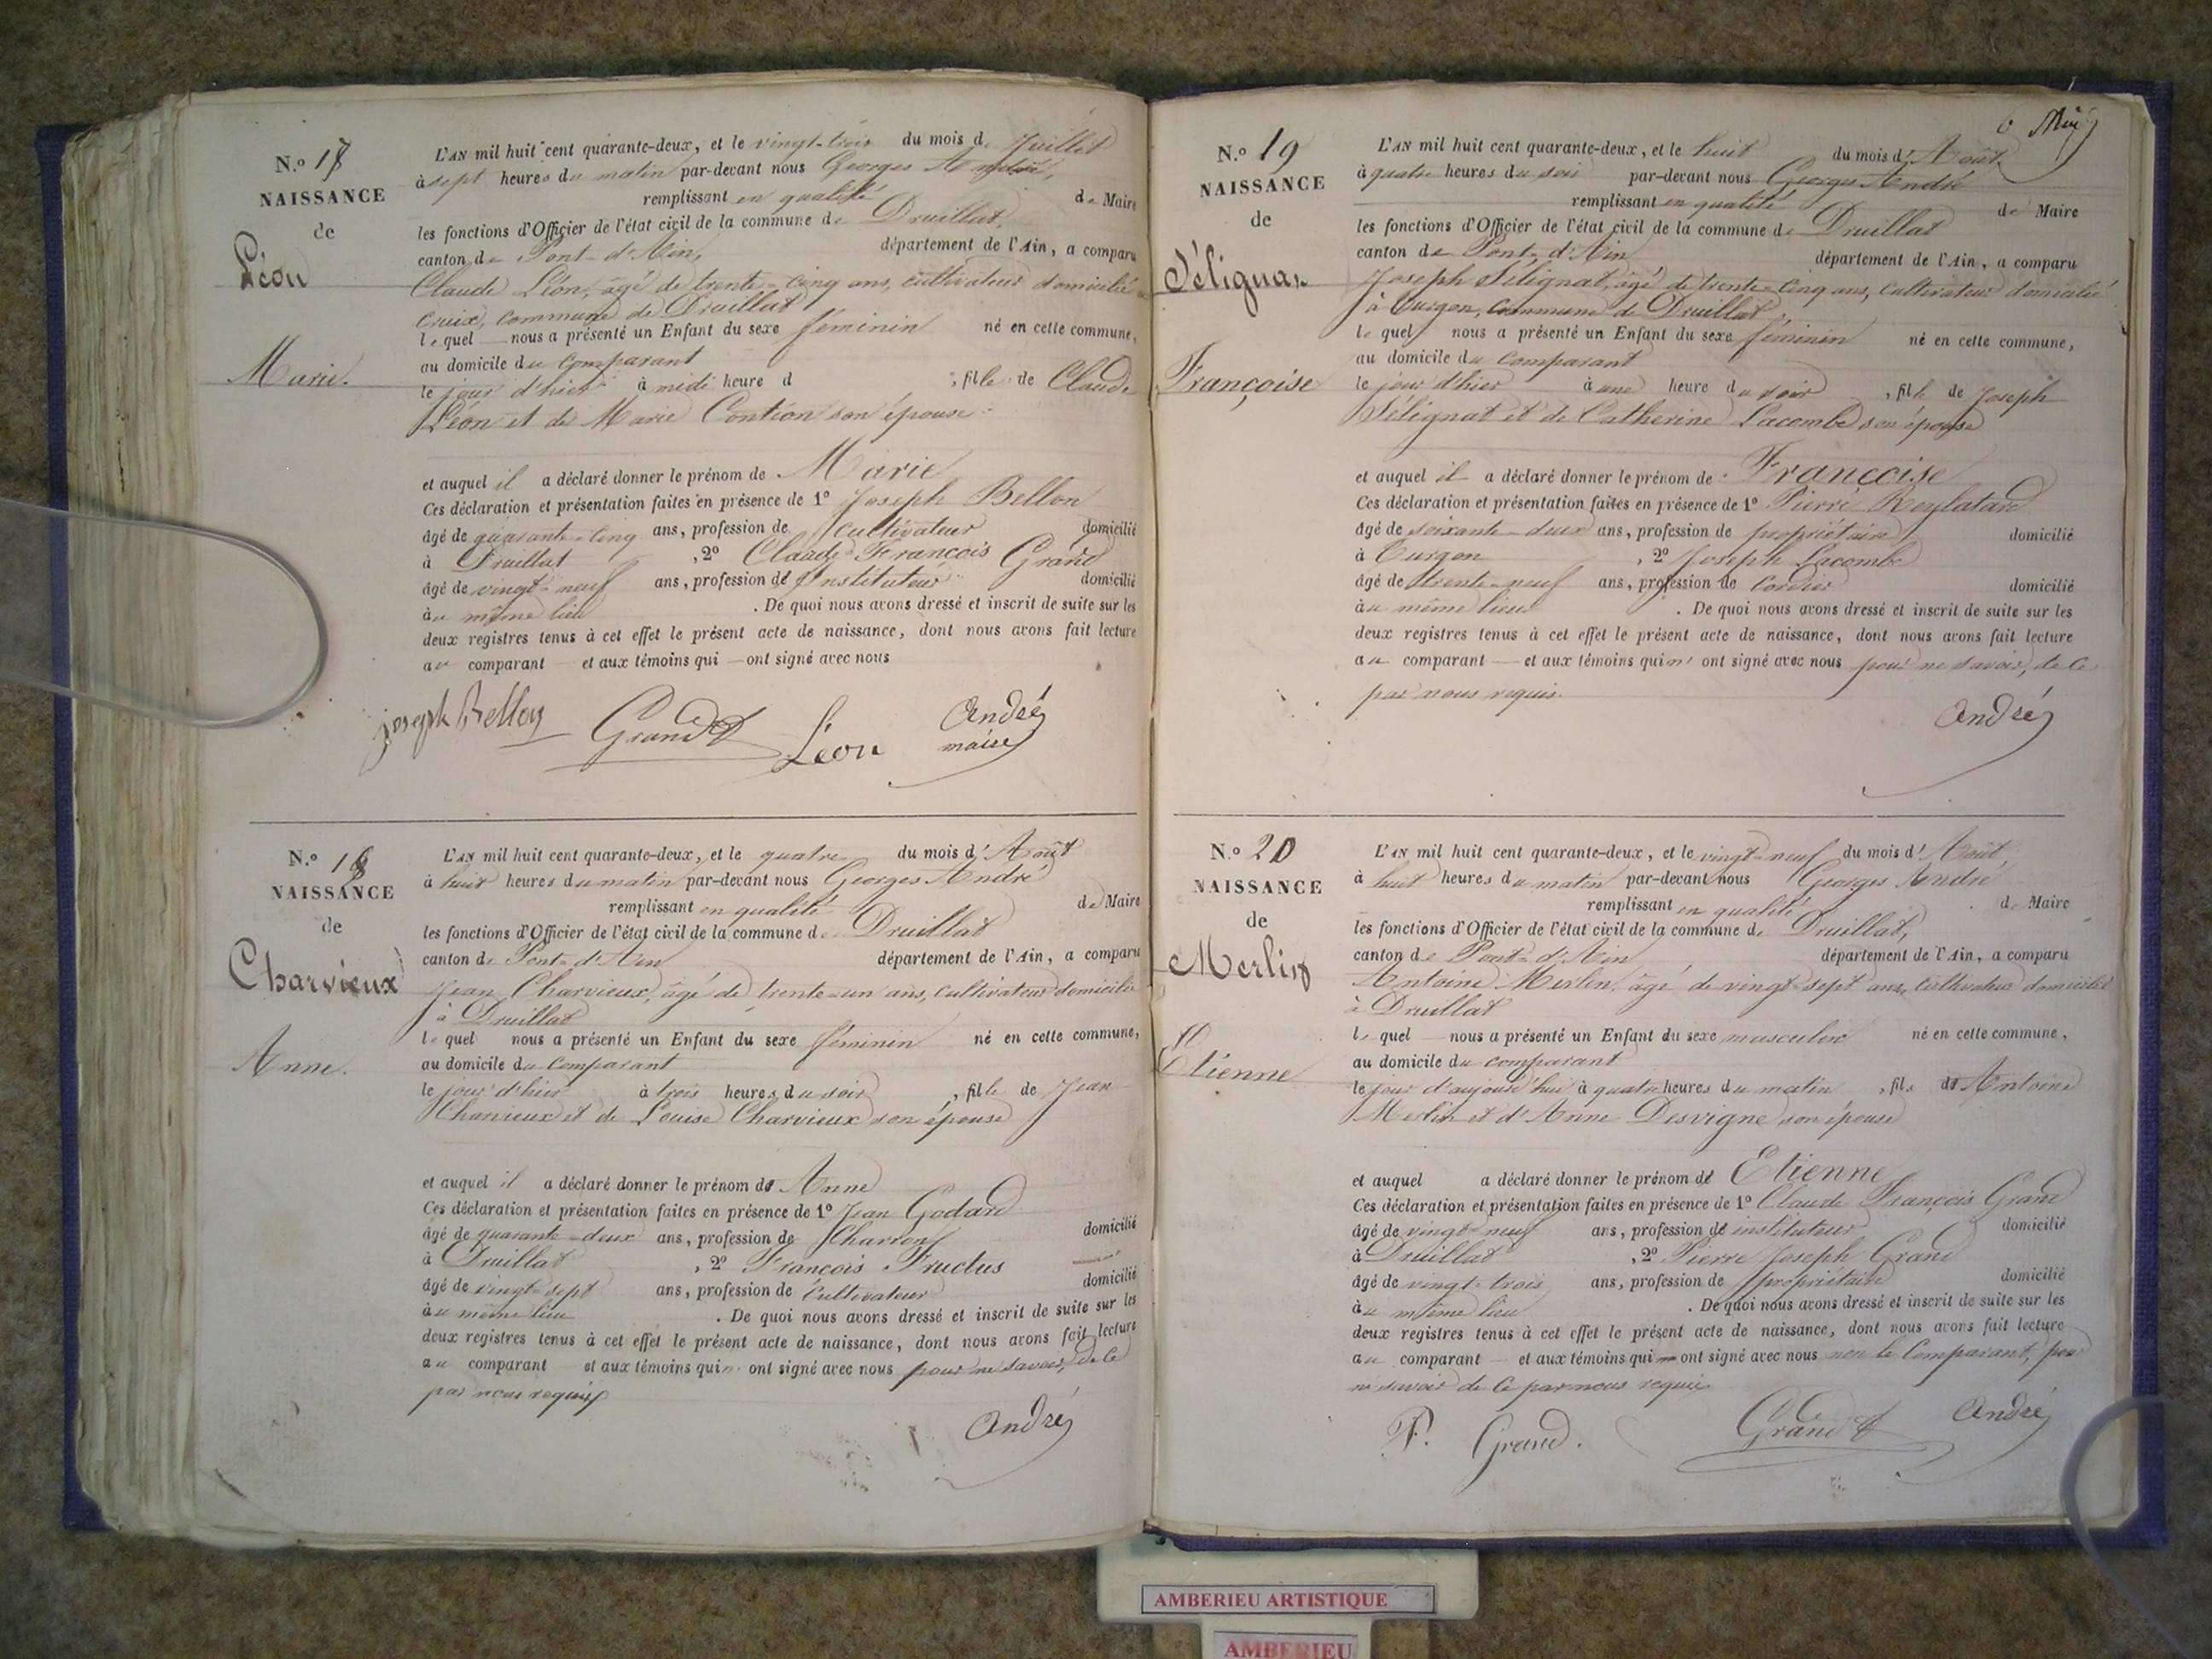 N.o 17
NAISSANCE
de
Léon
Marie.
L'AN mil huit cent quarante-deux, et le vingt-trois du mois de Juillet
à sept heures du matin par-devant nous Georges André,
remplissant en qualité de Maire
les fonctions d'Officier de l'état civil de la commune de Druillat,
canton de Pont-d'Ain, département de l'Ain, a comparu
Claude Léon, âgé de trente-cinq ans, cultivateur domicilié à
Cruix, commune de Druillat
lequel nous a présenté un Enfant du sexe féminin né en cette commune,
au domicile du comparant
le jour d'hier à midi heure d , fille de Claude
Léon et de Marie Contion son épouse
et auquel il a déclaré donner le prénom de Marie
Ces déclaration et présentation faites en présence de 1o Joseph Bellon
âgé de quarante-cinq ans, profession de cultivateur domicilié
à Druillat , 2o Claude-François Grand
âgé de vingt-neuf ans, profession de Instituteur domicilié
au même lieu . De quoi nous avons dressé et inscrit de suite sur les
deux registres tenus à cet effet le présent acte de naissance, dont nous avons fait lecture
au comparant et aux témoins qui ont signé avec nous
joseph Bellon Grand Léon André
maire
N.o 18
NAISSANCE
de
Charvieux
Anne.
L'AN mil huit cent quarante-deux, et le quatre du mois d'Août
à huit heures du matin par-devant nous Georges André
remplissant en qualité de Maire
les fonctions d'Officier de l'état civil de la commune de Druillat
canton de Pont-d'Ain département de l'Ain, a comparu
Jean Charvieux, âgé de trente-un ans, cultivateur domicilié
à Druillat
lequel nous a présenté un Enfant du sexe féminin né en cette commune,
au domicile du comparant
le jour d'hier à trois heures du soir , fille de Jean
Charvieux et de Louise Charvieux son épouse
et auquel il a déclaré donner le prénom de Anne
Ces déclaration et présentation faites en présence de 1o Jean Godard
âgé de quarante-deux ans, profession de Charron domicilié
à Druillat , 2o François Fructus
âgé de vingt-sept ans, profession de Cultivateur domicilié
au même lieu . De quoi nous avons dressé et inscrit de suite sur les
deux registres tenus à cet effet le présent acte de naissance, dont nous avons fait lecture
au comparant et aux témoins qui n' ont signé avec nous pour ne savoir, de ce
par nous requis
André
6
N.o 19
NAISSANCE
de
Sélignat
Françoise
L'AN mil huit cent quarante-deux, et le huit du mois d'Août
à quatre heures du soir par-devant nous Georges André
remplissant en qualité de Maire
les fonctions d'Officier de l'état civil de la commune de Druillat
canton de Pont-d'Ain département de l'Ain, a comparu
Joseph Sélignat, âgé de trente-cinq ans, cultivateur domicilié
à Turgon, commune de Druillat,
lequel nous a présenté un Enfant du sexe féminin né en cette commune,
au domicile du comparant
le jour d'hier à une heure du soir , fille de Joseph
Sélignat et de Catherine Lacombe son épouse
et auquel il a déclaré donner le prénom de Françoise
Ces déclaration et présentation faites en présence de 1o Pierre
âgé de soixante-deux ans, profession de propriétaire domicilié
à Turgon , 2o Joseph Lacombe
âgé de trente-neuf ans, profession de Cordier domicilié
au même lieu . De quoi nous avons dressé et inscrit de suite sur les
deux registres tenus à cet effet le présent acte de naissance, dont nous avons fait lecture
au comparant et aux témoins qui n' ont signé avec nous pour ne savoir, de ce
par nous requis.
André
N.o 20
NAISSANCE
de
Merlin
Etienne
L'AN mil huit cent quarante-deux, et le vingt-neuf du mois d'Août,
à huit heures du matin par-devant nous Georges André
remplissant en qualité de Maire
les fonctions d'Officier de l'état civil de la commune de Druillat,
canton de Pont-d'Ain département de l'Ain, a comparu
Antoine Merlin, âgé de vingt-sept ans, cultivateur domicilié
à Druillat
lequel nous a présenté un Enfant du sexe masculin né en cette commune,
au domicile du comparant
le jour d'aujourd'hui à quatre heures du matin , fils de Antoine
Merlin et d'Anne Desvigne son épouse
et auquel a déclaré donner le prénom de Etienne
Ces déclaration et présentation faites en présence de 1o Claude François Grand
âgé de vingt-neuf ans, profession de instituteur domicilié
à Druillat , 2o Pierre Joseph Grand
âgé de vingt-trois ans, profession de propriétaire domicilié
au même lieu . De quoi nous avons dressé et inscrit de suite sur les
deux registres tenus à cet effet le présent acte de naissance, dont nous avons fait lecture
au comparant et aux témoins qui ont signé avec nous non le comparant, pour
ne savoir de ce par nous requis
P. Grand. Grand André
AMBERIEU ARTISTIQUE
AMBERIEU